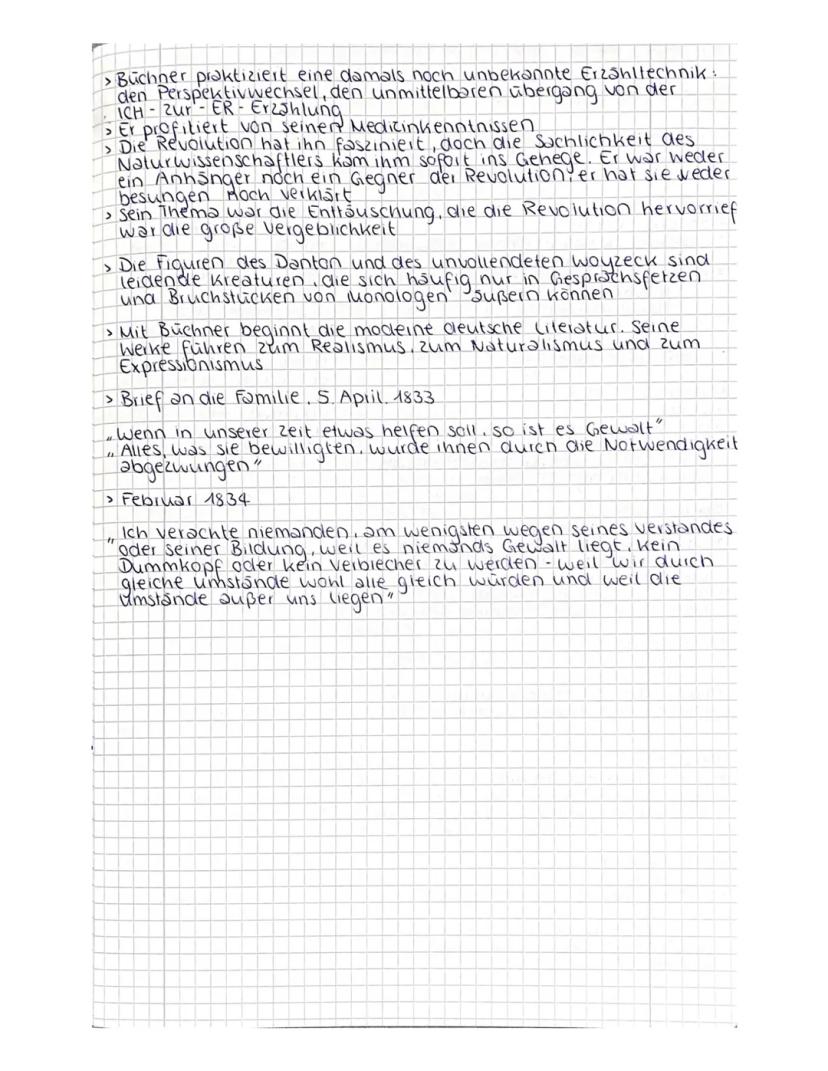 > Büchner praktiziert eine damals noch unbekannte Erzähltechnik:
den Perspektivwechsel, den unmittelbaren übergang von der
ICH - zur - ER - Erzählung
> Er profitiert von seinen Medizinkenntnissen
> Die Revolution hat ihn fasziniert, doch die Sachlichkeit des
Naturwissenschaftlers kam ihm sofort ins Gehege. Er war weder
ein Anhänger noch ein Gegner der Revolution; er hat sie weder
besungen noch verklärt
> Sein Thema war die Enttäuschung, die die Revolution hervorrief
war die große Vergeblichkeit
> Die Figuren des Danton und des unvollendeten Woyzeck sind
leidende Kreaturen, die sich häufig nur in Gesprächsfetzen
und Bruchstücken von Monologen äußern können
> Mit Büchner beginnt die moderne deutsche Literatur. Seine
Werke führen zum Realismus, zum Naturalismus und zum
Expressionismus
> Brief an die Familie, 5. April. 1833
„Wenn in unserer Zeit etwas helfen soll, so ist es Gewalt"
„Alles, was sie bewilligten, wurde ihnen durch die Notwendigkeit
abgezwungen"
> Februar 1834
„Ich verachte niemanden, am wenigsten wegen seines Verstandes
oder seiner Bildung, weil es niemands Gewalt liegt, kein
Dummkopf oder kein Verbrecher zu werden - weil wir durch
gleiche Umstände wohl alle gleich würden und weil die
Umstände außer uns liegen"